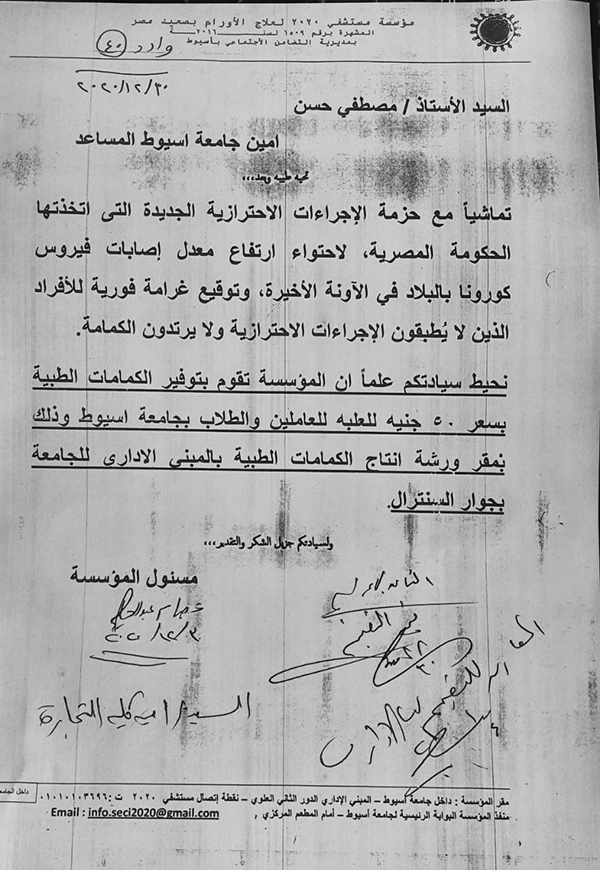 مؤسسة مستشفي ٢٠٢٠ لعلاج الأورام بصعيد مصر
المشهرة برقم ١٥٠٩ لسنة ٢٠١٦
بمديرية التضامن الأجتماعي بأسيوط
وارد (٤٠)
٢٠٢٠/١٢/٣٠
السيد الأستاذ / مصطفي حسن
امين جامعة اسيوط المساعد
تحيه طيبه وبعد،،،
تماشياً مع حزمة الإجراءات الاحترازية الجديدة التى اتخذتها
الحكومة المصرية، لاحتواء ارتفاع معدل إصابات فيروس
كورونا بالبلاد في الآونة الأخيرة، وتوقيع غرامة فورية للأفراد
الذين لا يُطبقون الإجراءات الاحترازية ولا يرتدون الكمامة.
نحيط سيادتكم علماً ان المؤسسة تقوم بتوفير الكمامات الطبية
بسعر ٥٠ جنيه للعلبه للعاملين والطلاب بجامعة اسيوط وذلك
بمقر ورشة انتاج الكمامات الطبية بالمبني الادارى للجامعة
بجوار السنترال.
ولسيادتكم جزيل الشكر والتقدير،،،
مسئول المؤسسة
السيد / امين كلية التجارة
مقر المؤسسة : داخل جامعة أسيوط – المبني الإداري الدور الثاني العلوي – نقطة إتصال مستشفي ٢٠٢٠ ت : ٠١٠١٠١٠٣٦٩٦
منفذ المؤسسة البوابة الرئيسية لجامعة أسيوط – أمام المطعم المركزي ,
Email : info.seci2020@gmail.com
داخل الجامعة